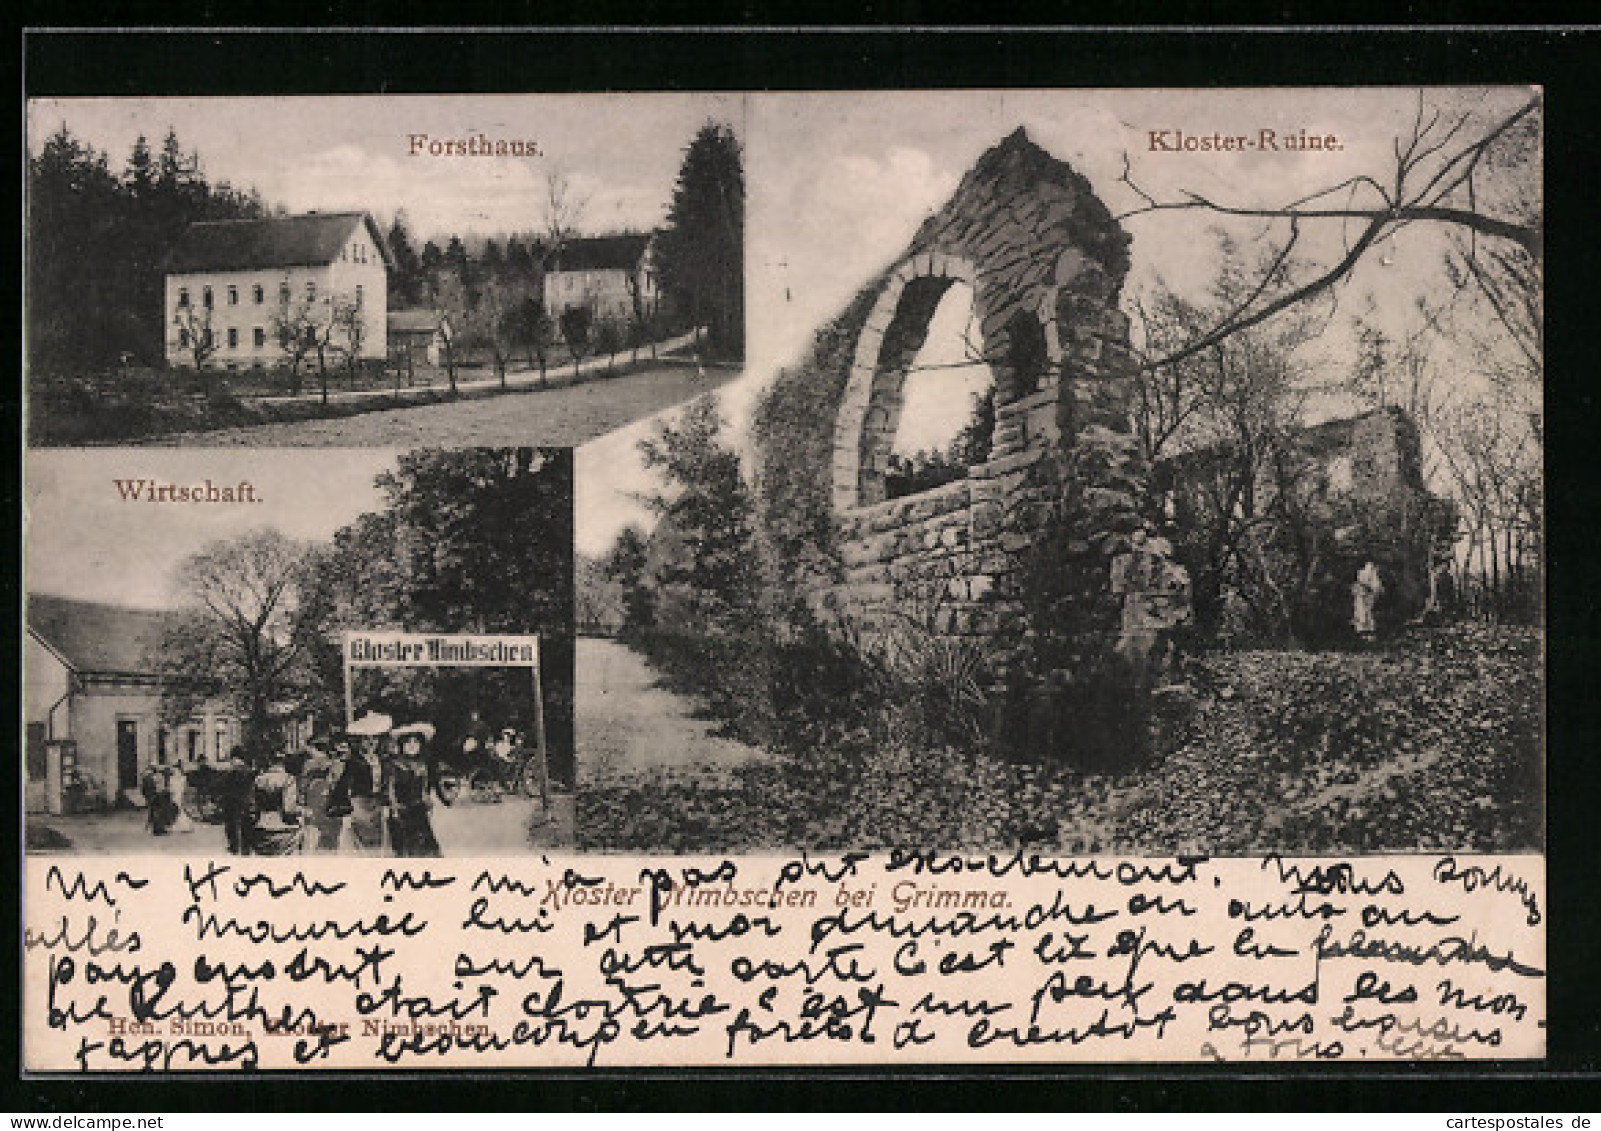 Forsthaus.
Kloster-Ruine.
Wirtschaft.
Kloster Nimbschen
Mr Horn ne m'a pas dit exactement. Nous sommes
Kloster Nimbschen bei Grimma.
allés Maurice lui et moi dimanche en auto au
pays endroit, sur cette carte c'est là que la
de Luther était cloitrée c'est un peu dans les mon
Hch. Simon, Kloster Nimbschen.
tagnes et beaucoup en forêts à bientôt bons baisers
à tous.
cartespostales.de